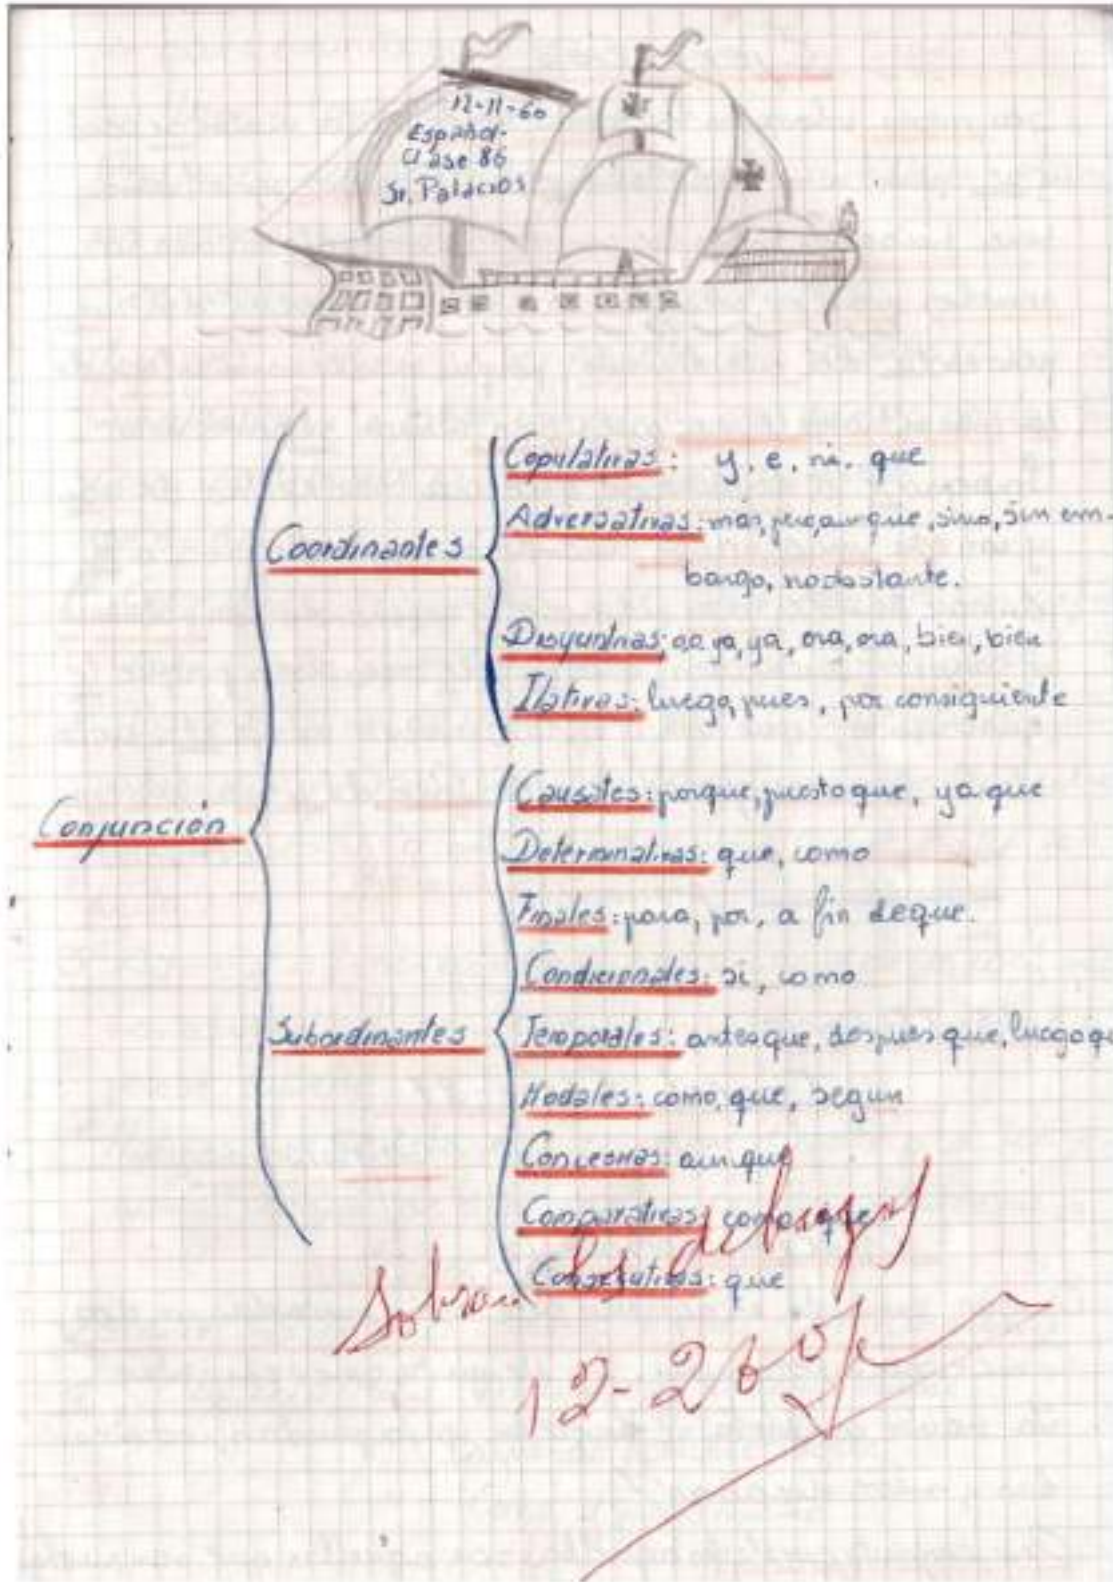 12-11-60
Español-
Clase 86
Sr. Palacios
Conjunción
Coordinantes
Copulativas: y, e, ni, que
Adversativas: más, pero, aunque, sino, sin em-
bargo, no obstante.
Disyuntivas: o, ya, ya, ora, ora, bien, bien
Ilativas: luego, pues, por consiguiente
Subordinantes
Causales: porque, puesto que, ya que
Determinativas: que, como
Finales: para, por, a fin de que.
Condicionales: si, como
Temporales: antes que, despues que, luego qu
Modales: como, que, segun
Concesivas: aunque
Comparativas: como, que
Consecutivas: que
Sobran los dibujos
12-2